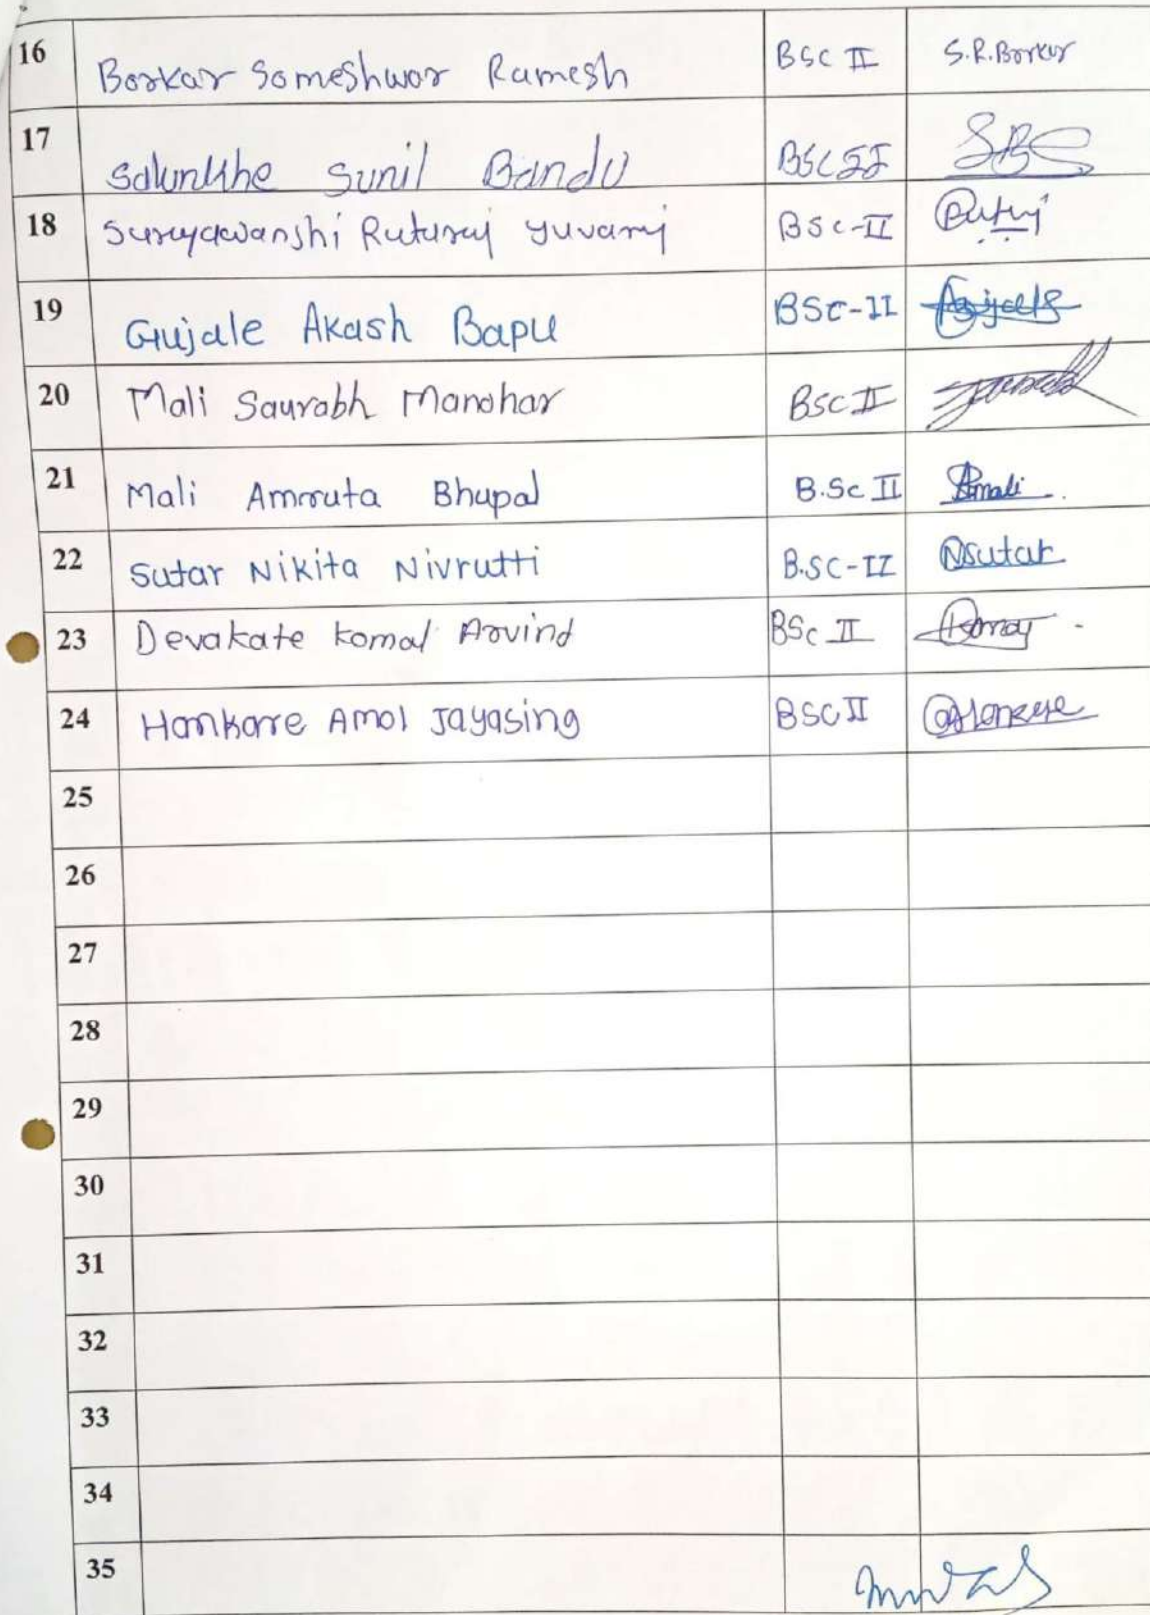 16 Borkar Someshwar Ramesh BSC II S.R.Borkar
17 Salunkhe Sunil Bandu BSC II SBS
18 Suryawanshi Ruturaj yuvaraj BSc-II
19 Gujale Akash Bapu BSC-II
20 Mali Saurabh Manohar BSC II
21 Mali Amruta Bhupal B.Sc II Amali
22 Sutar Nikita Nivrutti B.SC-II Nsutar
23 Devakate komal Arvind BSc II
24 Hankare Amol Jayasing BSC II
25
26
27
28
29
30
31
32
33
34
35